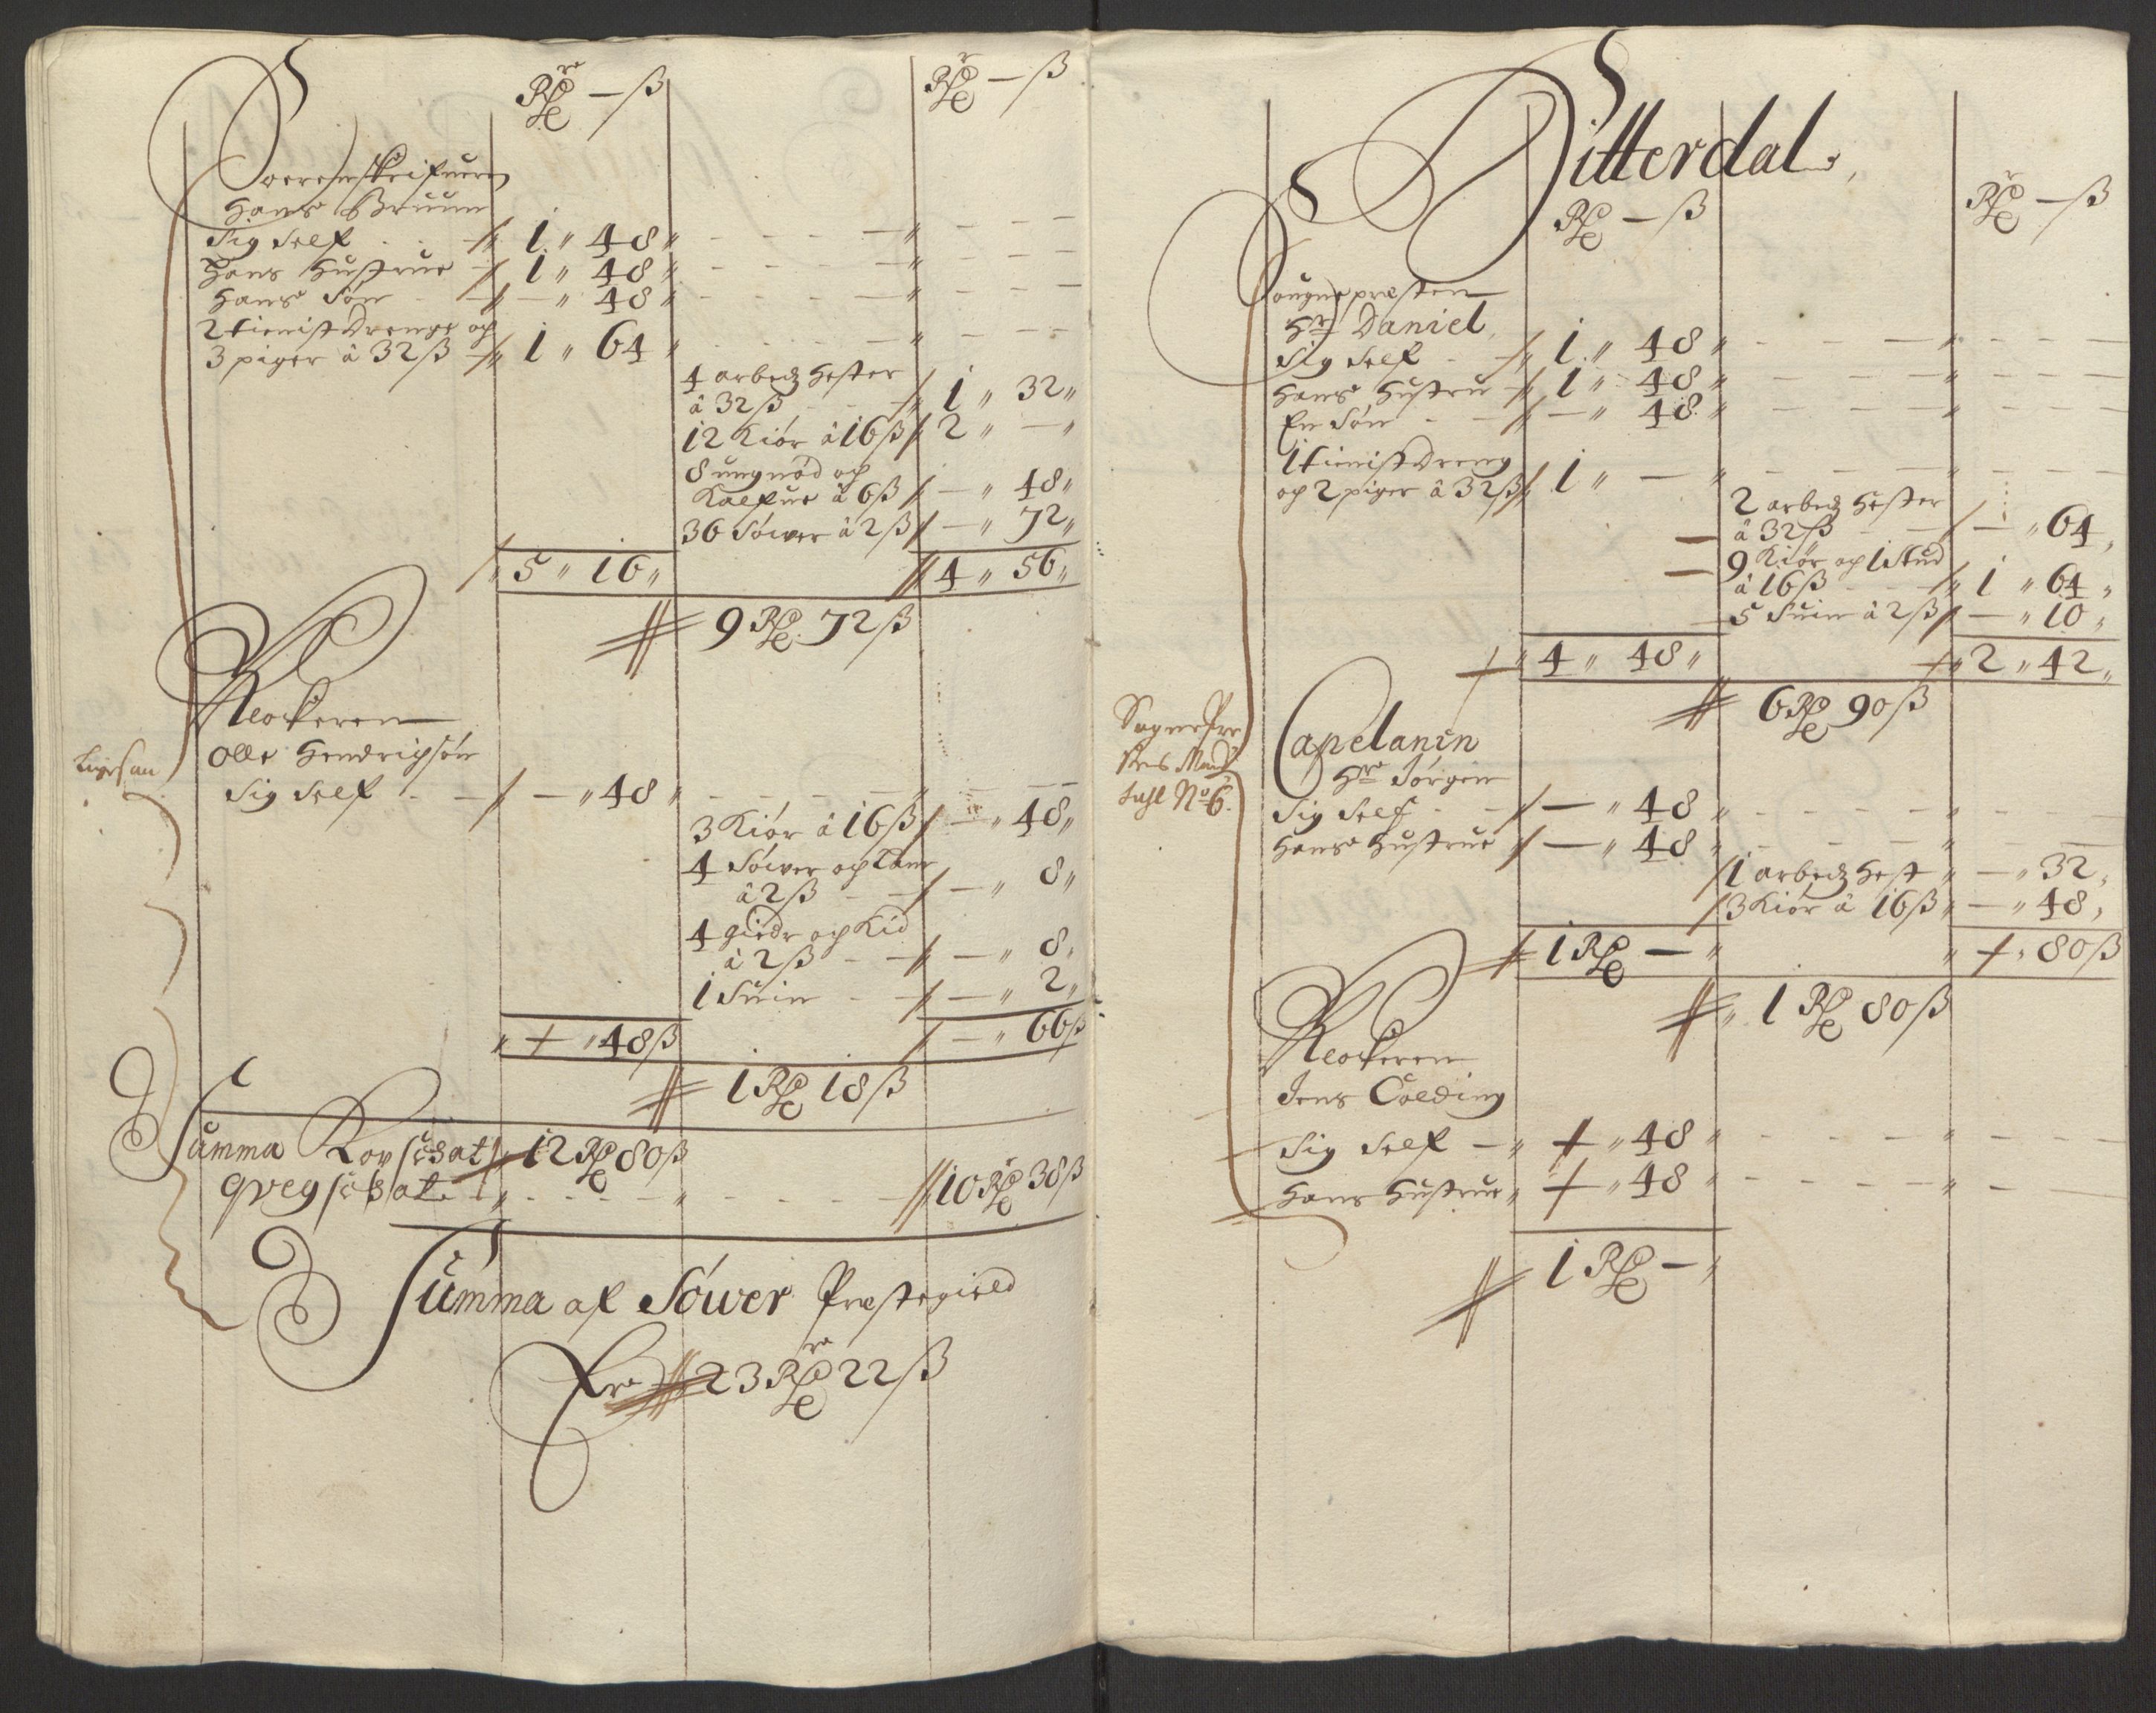 Rdr — ß    Rdr — ß
Soerenskrifueren
Hans Bruun
Sig Self - - 1 „ 48 „
Hans Hustrue - 1 „ 48 „
Hans Søn - — „ 48 „
2 tienist Drenge og
3 piger à 32 ß - 1 „ 64 „
4 arbeidz Hester
à 32 ß - - 1 „ 32 „
12 Kiør à 16 ß 2 „ — „
8 ungnød og
Kalfue à 6 ß — „ 48 „
36 Søwer à 2 ß — „ 72 „
5 „ 16 „    4 „ 56 „
9 Rd 72 ß
Klockeren
Olle Hendrigsøn
Sig Self - — „ 48 „
3 Kiør à 16 ß — „ 48 „
4 Søwer og Lam
à 2 ß - — „ 8 „
4 gieder og Kid
à 2 ß - - — „ 8 „
1 Suin - — „ 2 „
„ 48 ß    — „ 66 ß
1 Rd 18 ß
Summa Kopschat 12 Rd 80 ß
Qvegschat - - 10 Rdr 38 ß
Summa af Søwer Præstegield
Er 23 Rdr 22 ß
Hitterdal
Rd — ß    Rdr — ß
Sougnepræsten
Hr Daniel
Sig Self - 1 „ 48 „
Hans Hustru - 1 „ 48 „
En Søn - - — „ 48 „
1 tienist Dreng
og 2 piger à 32 ß 1 „ — „
2 arbeidz Hester
à 32 ß - — „ 64 „
9 Kiør og 1 Stud
à 16 ß - - 1 „ 64 „
5 Suin à 2 ß — „ 10 „
4 „ 48 „    2 „ 42 „
6 Rd 90 ß
Sogne Præ
stens Mand
tahl No 6.
Capelanen
Hr Jørgen
Sig Self - - — „ 48 „
Hans Hustrue — „ 48 „
1 arbeidz Hest „ — „ 32 „
3 Kiør à 16 ß „ — „ 48 „
1 Rd — „    „ 80 ß
1 Rd 80 ß
Klockeren
Jens Colding
Sig Self — „ 48 „
Hans Hustrue „ 48 „
1 Rd — „